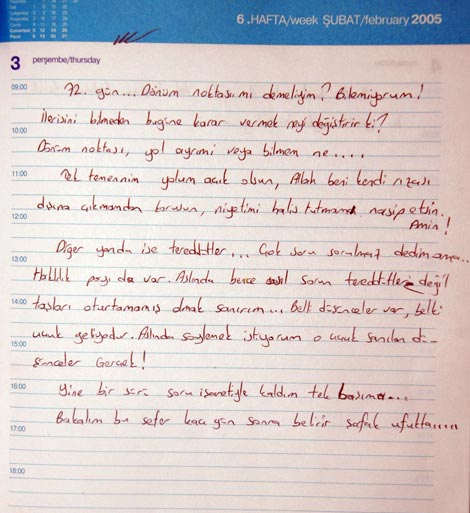 6.HAFTA/week ŞUBAT/february 2005
3 perşembe/thursday
09:00
72. gün... Dönüm noktası mı demeliyim? Bilemiyorum!
İlerisini bilmeden bugüne karar vermek neyi değiştirir ki?
10:00
Dönüm noktası, yol ayrımı veya bilmem ne....
11:00
Tek temennim yolum açık olsun, Allah beni kendi rızası
12:00
dışına çıkmaktan korusun, niyetimi halis tutmamı nasip etsin.
Amin!
Diğer yanda ise tereddütler... Çok soru sorulmaz dedim ama..
13:00
Haklılık payı da var. Aslında bence asıl sorun tereddütler değil
14:00
taşları oturtamamış olmak sanırım... Belli düşünceler var, belki
uçuk geliyodur. Aslında söylemek istiyorum o uçuk sanılan dü-
15:00
şünceler Gerçek!
16:00
Yine bir sürü soru işaretiyle kaldım tek başıma...
Bakalım bu sefer kaç gün sonra belirir şafak ufukta....
17:00
18:00